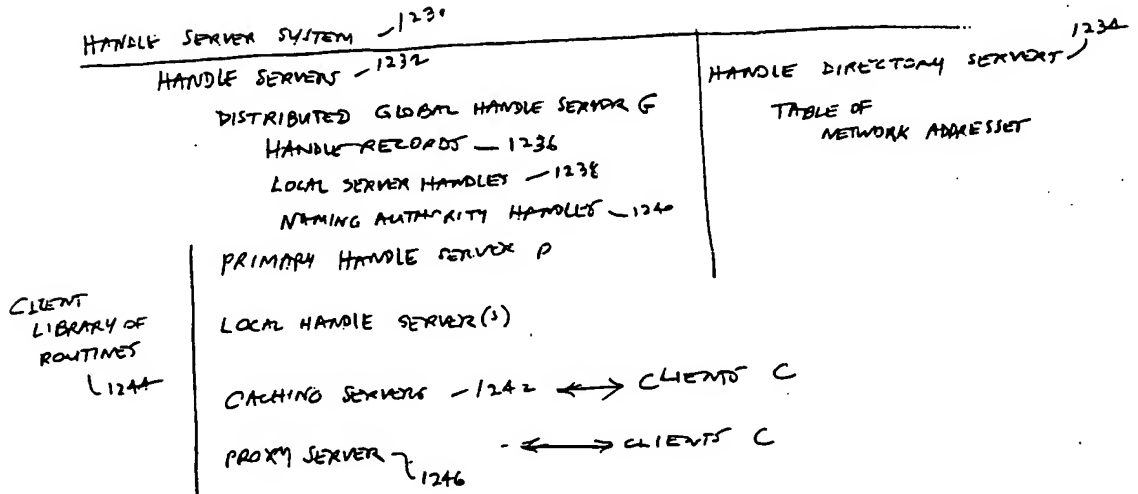 HANDLE SERVER SYSTEM 1230
HANDLE SERVERS 1232
DISTRIBUTED GLOBAL HANDLE SERVER G
HANDLE RECORDS — 1236
LOCAL SERVER HANDLES — 1238
NAMING AUTHORITY HANDLES — 1240
PRIMARY HANDLE SERVER P
LOCAL HANDLE SERVER(S)
CACHING SERVERS — 1242 ↔ CLIENTS C
PROXY SERVER 1246 ↔ CLIENTS C
CLIENT
LIBRARY OF
ROUTINES
1244
HANDLE DIRECTORY SERVERS 1234
TABLE OF
NETWORK ADDRESSES